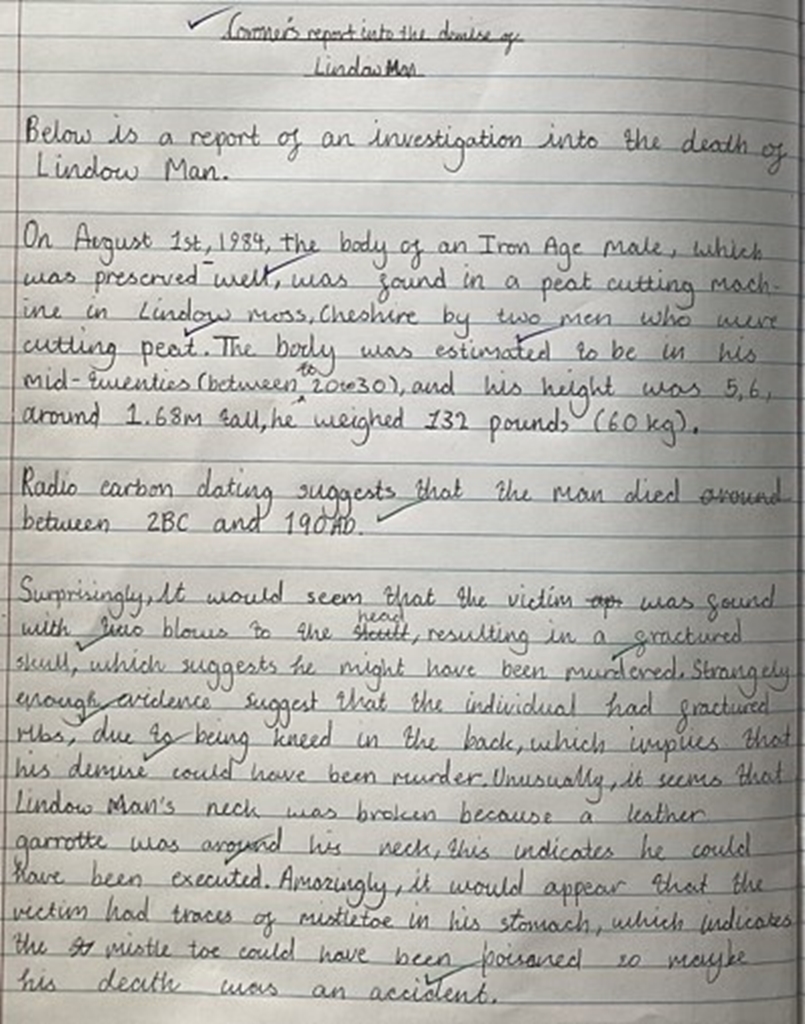 Coroner's report into the demise of
Lindow Man
Below is a report of an investigation into the death of
Lindow Man.
On August 1st, 1984, the body of an Iron Age male, which
was preserved well, was found in a peat cutting mach-
ine in Lindow moss, Cheshire by two men who were
cutting peat. The body was estimated to be in his
mid-twenties (between 20 to 30), and his height was 5,6,
around 1.68m tall, he weighed 132 pounds (60 kg).
Radio carbon dating suggests that the man died around
between 2BC and 190AD.
Surprisingly, it would seem that the victim ap was found
with two blows to the head, resulting in a fractured
skull, which suggests he might have been murdered. Strangely
enough, evidence suggest that the individual had fractured
ribs, due to being kneed in the back, which implies that
his demise could have been murder. Unusually, it seems that
Lindow Man's neck was broken because a leather
garrotte was around his neck, this indicates he could
have been executed. Amazingly, it would appear that the
victim had traces of mistletoe in his stomach, which indicates
the mistle toe could have been poisoned so maybe
his death was an accident.